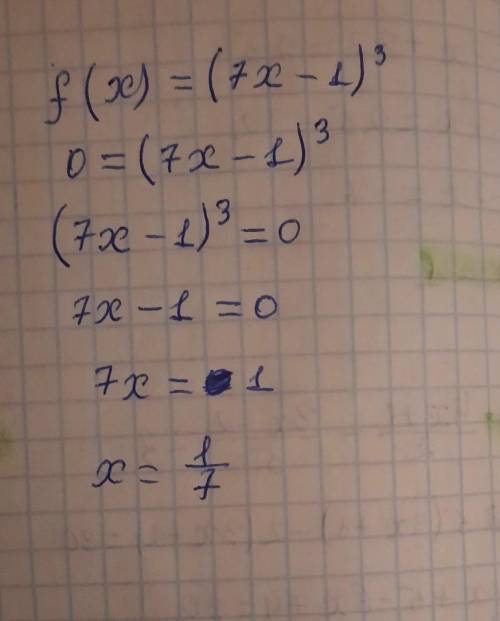 f(x) = (7x - 1)³
0 = (7x - 1)³
(7x - 1)³ = 0
7x - 1 = 0
7x = 1
x = 1/7